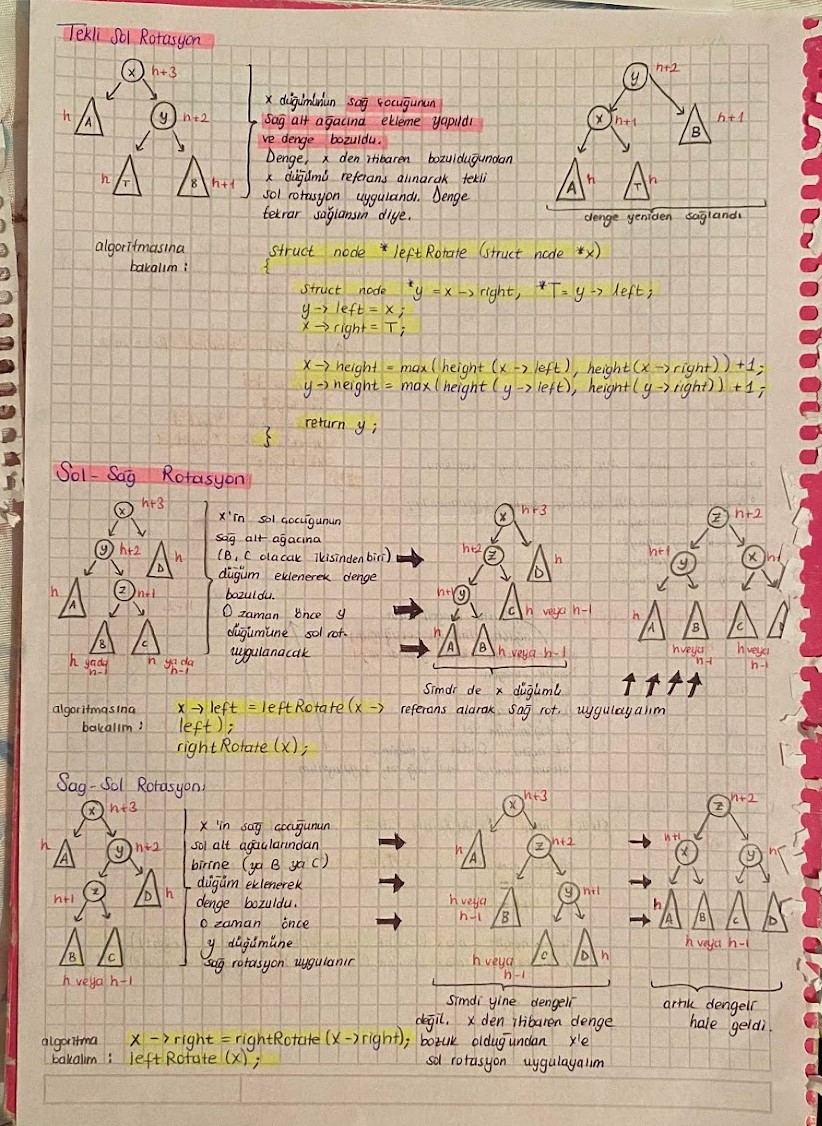 Tekli Sol Rotasyon
x h+3
h A y h+2
h T B h+1
x düğümünün sağ çocuğunun
sağ alt ağacına ekleme yapıldı
ve denge bozuldu.
Denge, x den itibaren bozulduğundan
x düğümü referans alınarak tekli
sol rotasyon uygulandı. Denge
tekrar sağlansın diye.
y h+2
x h+1 B h+1
A h T h
denge yeniden sağlandı
algoritmasına
bakalım :
struct node * leftRotate (struct node *x)
{
struct node *y = x -> right, *T = y -> left;
y -> left = x;
x -> right = T;
x -> height = max(height (x -> left), height(x -> right)) +1;
y -> height = max(height (y -> left), height(y -> right)) +1;
return y;
}
Sol - Sağ Rotasyon
x h+3
y h+2 D h
h A z h+1
B C
h yada h-1 h ya da h-1
x'in sol çocuğunun
sağ alt ağacına
(B, C olacak ikisinden biri)
düğüm eklenerek denge
bozuldu.
O zaman önce y
düğümüne sol rot.
uygulanacak
x h+3
h+2 z D h
h+1 y C h veya h-1
h A B h veya h-1
Simdi de x düğümü
referans alarak sağ rot. uygulayalım
z h+2
h+1 y x
h A B C
h veya h-1 h veya h-1
algoritmasına
bakalım :
x -> left = leftRotate (x ->
left);
rightRotate (x);
Sag-Sol Rotasyon:
x h+3
h A y h+2
h+1 z D h
B C
h veya h-1
x 'in sağ çocuğunun
sol alt ağaçlarından
birine (ya B ya C)
düğüm eklenerek
denge bozuldu.
O zaman önce
y düğümüne
sağ rotasyon uygulanır
x h+3
h A z h+2
h veya h-1 B y h+1
h veya h-1 C D h
Simdi yine dengeli
değil. x den itibaren denge
bozuk olduğundan x'e
sol rotasyon uygulayalım
z h+2
h+1 x y
h A B C D
h veya h-1
artık dengeli
hale geldi.
algoritma
bakalım :
x -> right = rightRotate (x -> right);
leftRotate (x);